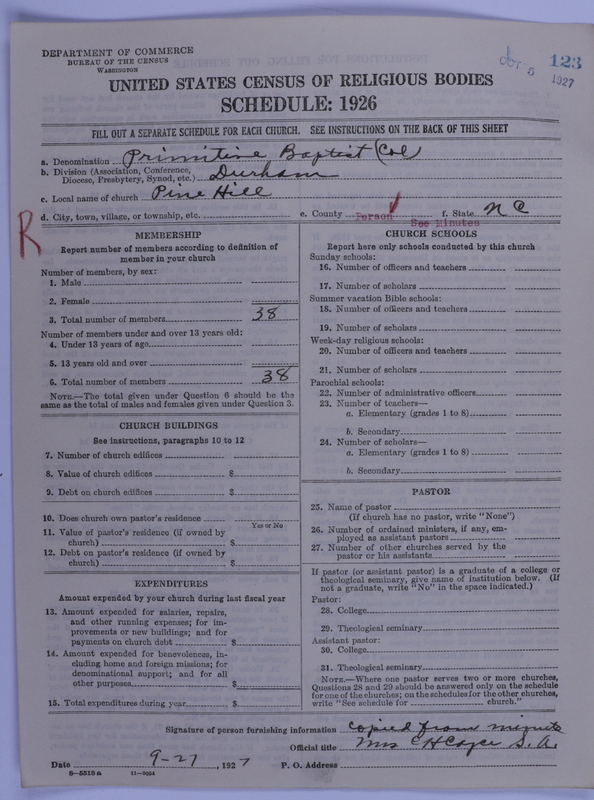 DEPARTMENT OF COMMERCE
BUREAU OF THE CENSUS
WASHINGTON
OCT 5 1927
123
UNITED STATES CENSUS OF RELIGIOUS BODIES
SCHEDULE: 1926
FILL OUT A SEPARATE SCHEDULE FOR EACH CHURCH. SEE INSTRUCTIONS ON THE BACK OF THIS SHEET
a. Denomination Primitive Baptist (Col)
b. Division (Association, Conference, Diocese, Presbytery, Synod, etc.) Durham
c. Local name of church Pine Hill
d. City, town, village, or township, etc.
e. County Person f. State N C
See Minutes
R
MEMBERSHIP
Report number of members according to definition of
member in your church
Number of members, by sex:
1. Male
2. Female
3. Total number of members 38
Number of members under and over 13 years old:
4. Under 13 years of age
5. 13 years old and over
6. Total number of members 38
NOTE.—The total given under Question 6 should be the
same as the total of males and females given under Question 3.
CHURCH BUILDINGS
See instructions, paragraphs 10 to 12
7. Number of church edifices
8. Value of church edifices $
9. Debt on church edifices $
10. Does church own pastor's residence
Yes or No
11. Value of pastor's residence (if owned by
church) $
12. Debt on pastor's residence (if owned by
church) $
EXPENDITURES
Amount expended by your church during last fiscal year
13. Amount expended for salaries, repairs,
and other running expenses; for im-
provements or new buildings; and for
payments on church debt $
14. Amount expended for benevolences, in-
cluding home and foreign missions; for
denominational support; and for all
other purposes $
15. Total expenditures during year $
CHURCH SCHOOLS
Report here only schools conducted by this church
Sunday schools:
16. Number of officers and teachers
17. Number of scholars
Summer vacation Bible schools:
18. Number of officers and teachers
19. Number of scholars
Week-day religious schools:
20. Number of officers and teachers
21. Number of scholars
Parochial schools:
22. Number of administrative officers
23. Number of teachers—
a. Elementary (grades 1 to 8)
b. Secondary
24. Number of scholars—
a. Elementary (grades 1 to 8)
b. Secondary
PASTOR
25. Name of pastor
(If church has no pastor, write "None")
26. Number of ordained ministers, if any, em-
ployed as assistant pastors
27. Number of other churches served by the
pastor or his assistants
If pastor (or assistant pastor) is a graduate of a college or
theological seminary, give name of institution below. (If
not a graduate, write "No" in the space indicated.)
Pastor:
28. College
29. Theological seminary
Assistant pastor:
30. College
31. Theological seminary
NOTE.—Where one pastor serves two or more churches,
Questions 28 and 29 should be answered only on the schedule
for one of the churches; on the schedules for the other churches,
write "See schedule for church."
Signature of person furnishing information Copied from minutes
Official title Mrs C H S. A.
Date 9-27, 1927 P. O. Address
8-5518 a 11-9004